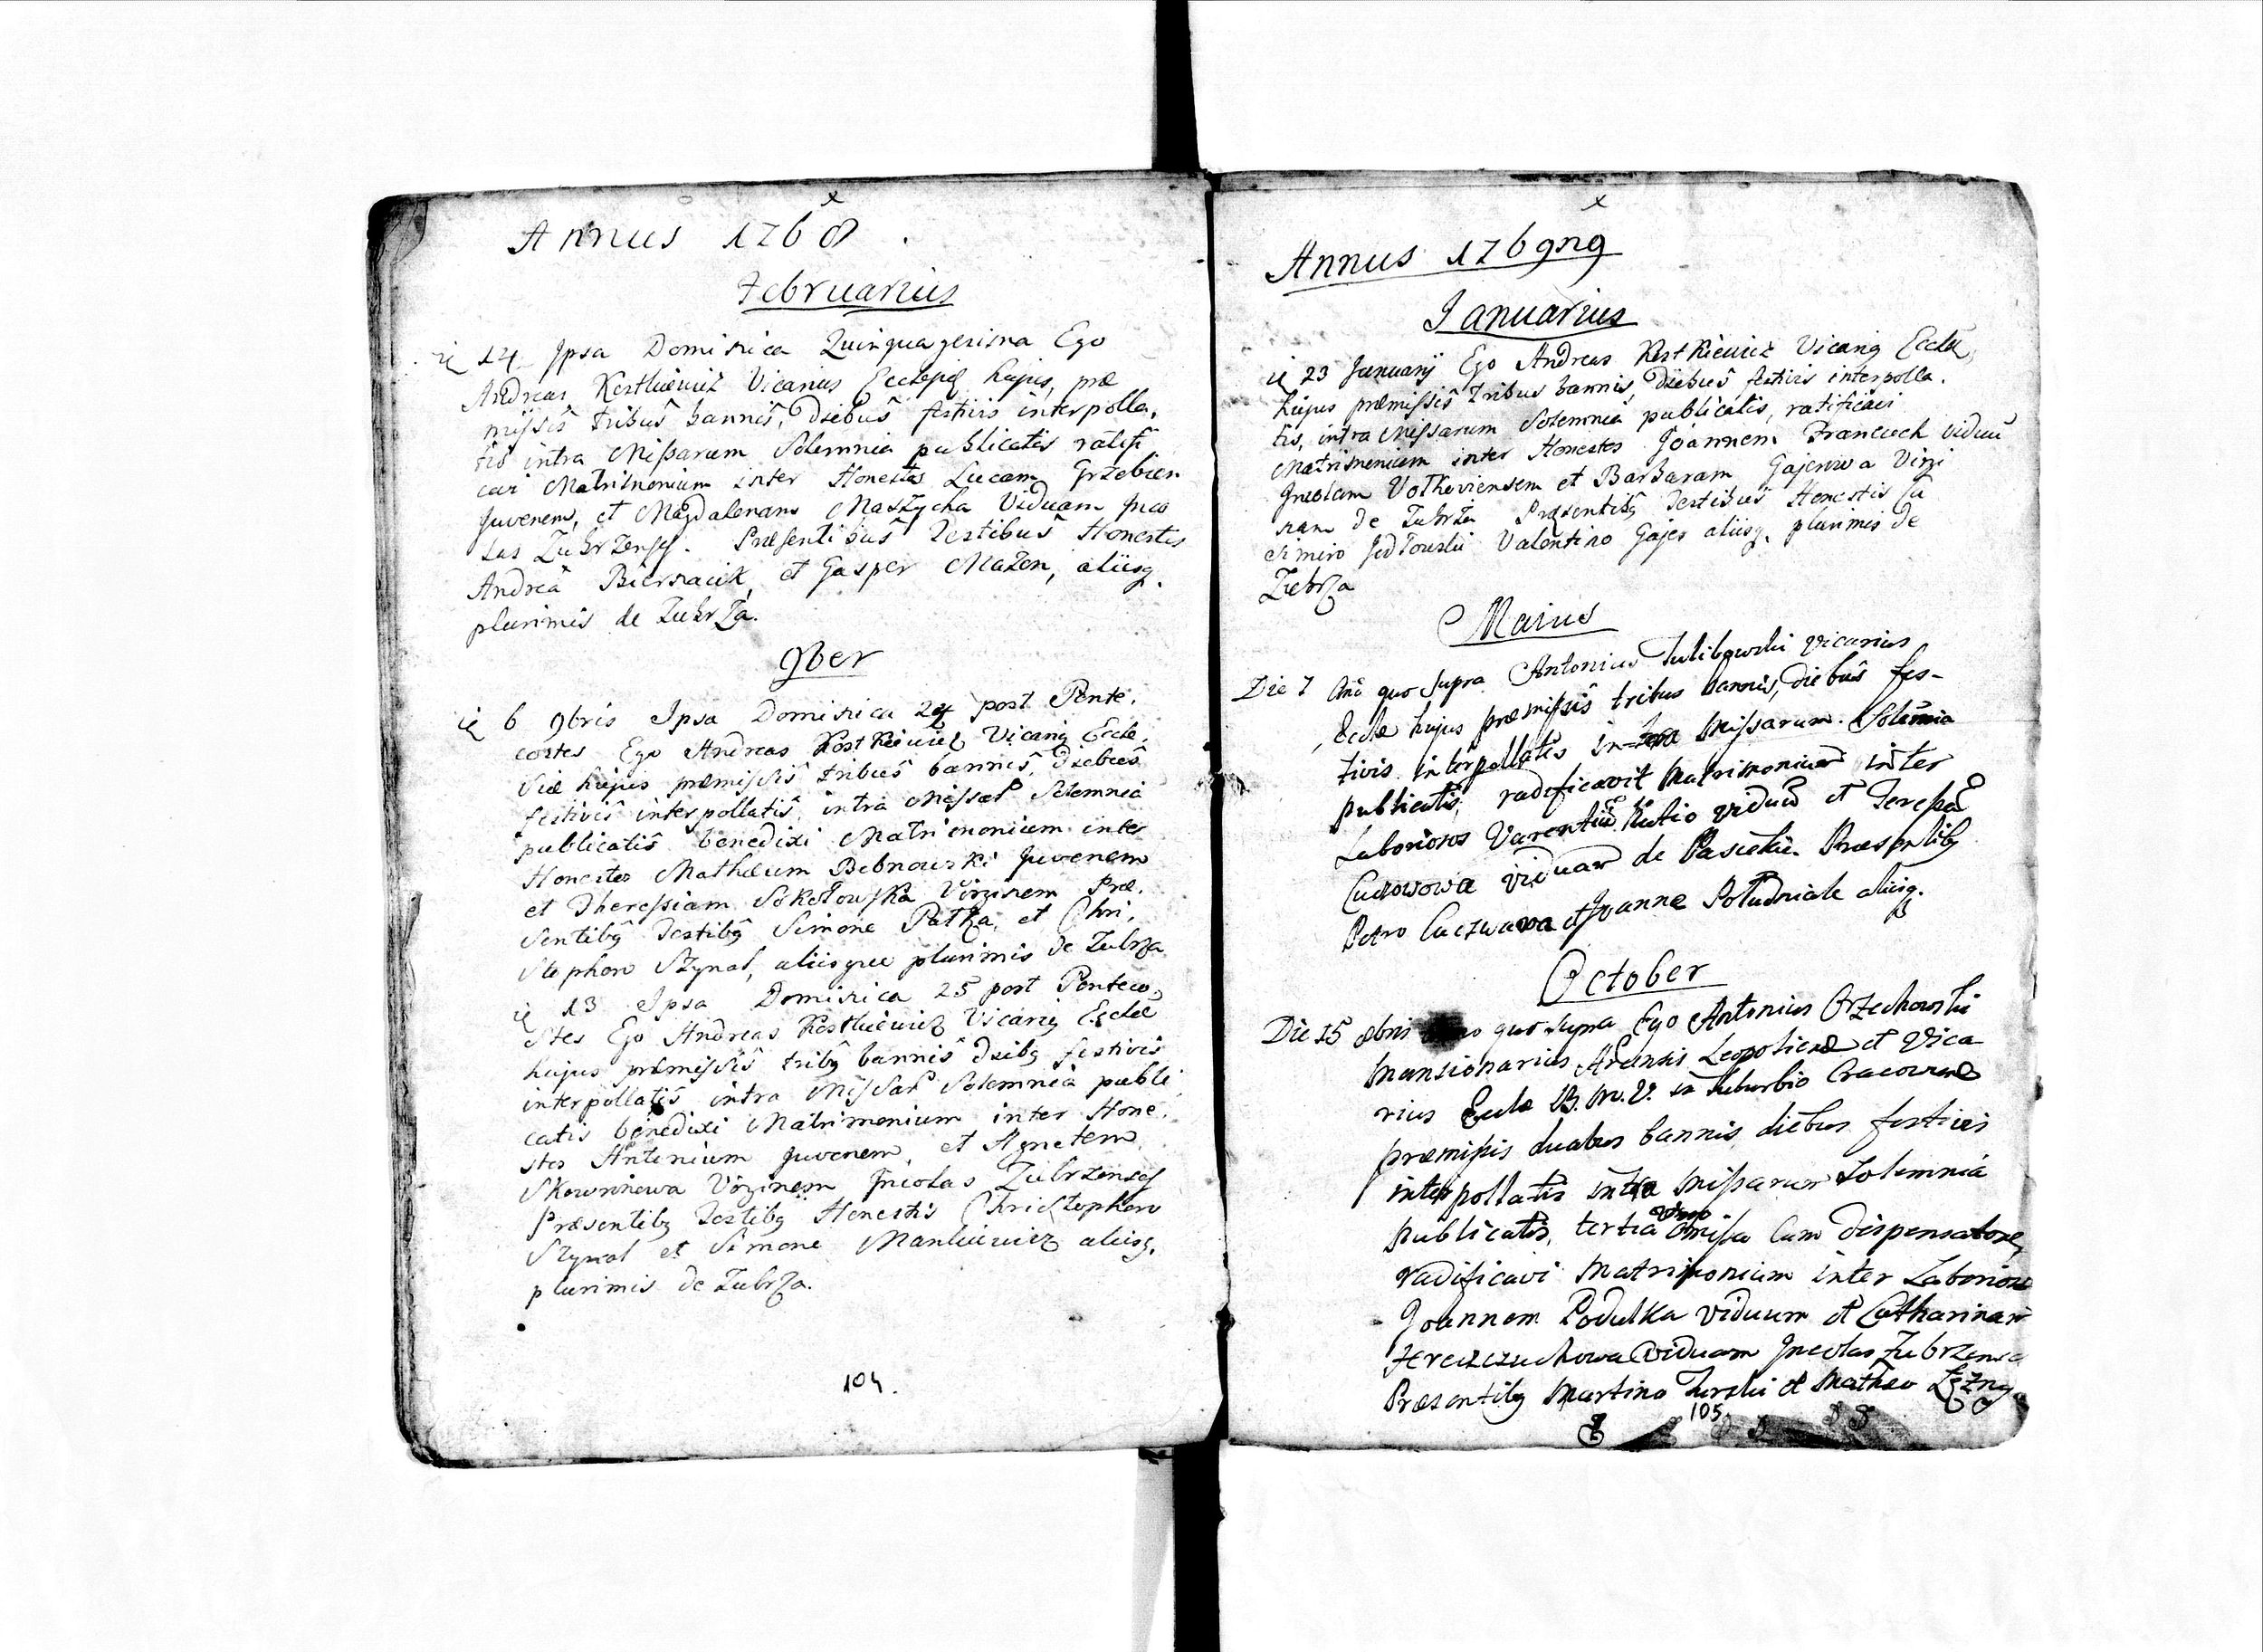 Annus 1768.
Februarius
ie 14 Ipsa Dominica Quinquagesima Ego
Andreas Kostkiewicz Vicarius Ecclesiæ hujus, præ
missis tribus bannis, diebus festivis interpolla,
tis intra Missarum Solemnia publicatis ratifi
cavi Matrimonium inter Honestos Lucam Grzebien
Juvenem, et Magdalenam Maszycha Viduam Inco
las Zubrzenses. Præsentibus Testibus Honestis
Andrea Biernacik, et Gasper Mazen, aliisq.
plurimis de Zubrza.
9ber
ie 6 9bris Ipsa Dominica 24 post Pente.
costes Ego Andreas Kostkiewicz Vicariq Eccle.
siæ hujus præmissis tribus bannis, diebus
festivis interpollatis, intra Missar Solemnia
publicatis benedixi Matrimonium inter
Honestos Mathæum Bebnowski Juvenem
et Theressiam Sokołowska Virginem Præ.
sentibq Testibq Simone Patka, et Chri.
stophoro Szynal, aliisque plurimis de Zubrza
ie 13 Ipsa Dominica 25 post Penteco.
stes Ego Andreas Kostkiewicz Vicariq Ecclæ
hujus præmissis tribq bannis diebq festivis
interpollatis intra Missar Solemnia publi
catis benedixi Matrimonium inter Hone.
stos Antonium Juvenem, et Agnetem
Skowrinowa Virginem Incolas Zubrzenses
Præsentibq Testibq Honestis Christophoro
Szynal et Simone Mankiewicz aliisq.
plurimis de Zubrza.
104.
Annus 1769nq
Januarius
ie 23 Januarij Ego Andreas Kostkiewicz Vicariq Ecclæ
hujus præmissis tribus bannis, diebus festivis interpolla.
tis, intra Missarum Solemnia publicatis, ratificavi
Matrimonium inter Honestos Joannem Franciuch viduu
Incolam Volkoviensem et Barbaram Gajenwa Virgi
nam de Zubrza Præsentibq Testibus Honestis Ca
simiro Jedłowski Valentino Gajes aliisq. plurimis de
Zubrza
Maius
Die 7 Ano quo supra Antonius Tulibowski vicarius
Eccle hujus præmissis tribus bannis, diebus fes-
tivis interpollatis intra Missarum Solemnia
publicatis, radificavit Matrimonium inter
Laboriosos Varentiu Rutio viduu et Teressa
Cuczowowa viduam de Pasieki. Præsentibq
Petro Cuczwara et Joanne Południak aliisq.
October
Die 15 8bris quo supra Ego Antonius Orzechowski
Mansionarius Leopoliens et Vica
rius Eccle B. M. V. in suburbio Cracoviens
præmissis duabus bannis diebus festivis
interpollatis intra Missarum Solemnia
publicatis, tertia vero omissa Cum dispensatore,
radificavi Matrimonium inter Laborios
Joannem Podulka viduum et Catharinam
viduam Incolas Zubrzense
Præsentibq Martino Turski et Matheo
105.